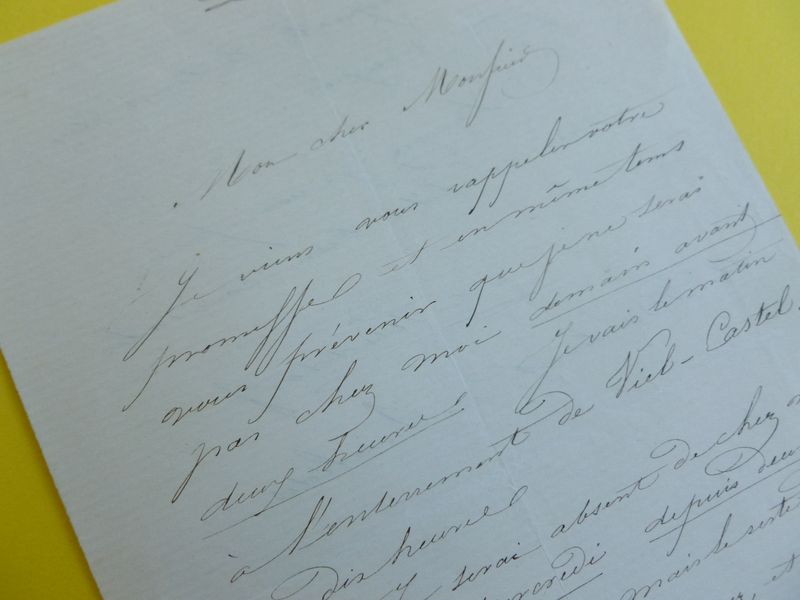 Mon cher Monsieur
Je viens vous rappeler votre
promesse et en même tems
vous prévenir que je ne serai
pas chez moi demain avant
deux heures. Je vais le matin
à l'enterrement de Viel-Castel.
dix heures
Je serai absent de chez m
mercredi depuis deux
mais le reste
et